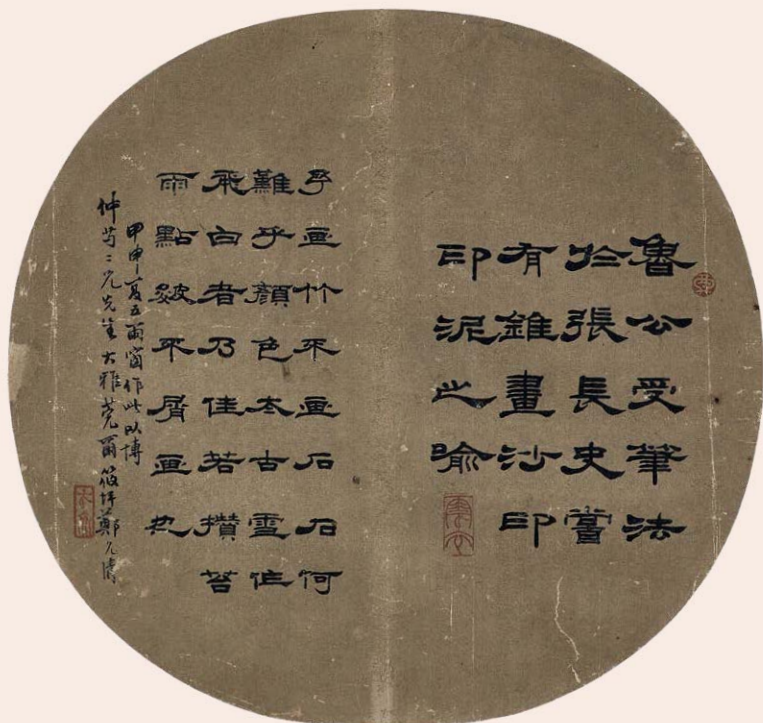 魯公受筆法
於張長史嘗
有錐畫沙印
印泥之喻
予画竹不画石石何
難乎顏色太古雪作
飛白者乃佳若攢苔
雨點皴不屑画也
甲申夏五雨窗作此以博
仲二兄先生大雅莞爾筱坪鄭